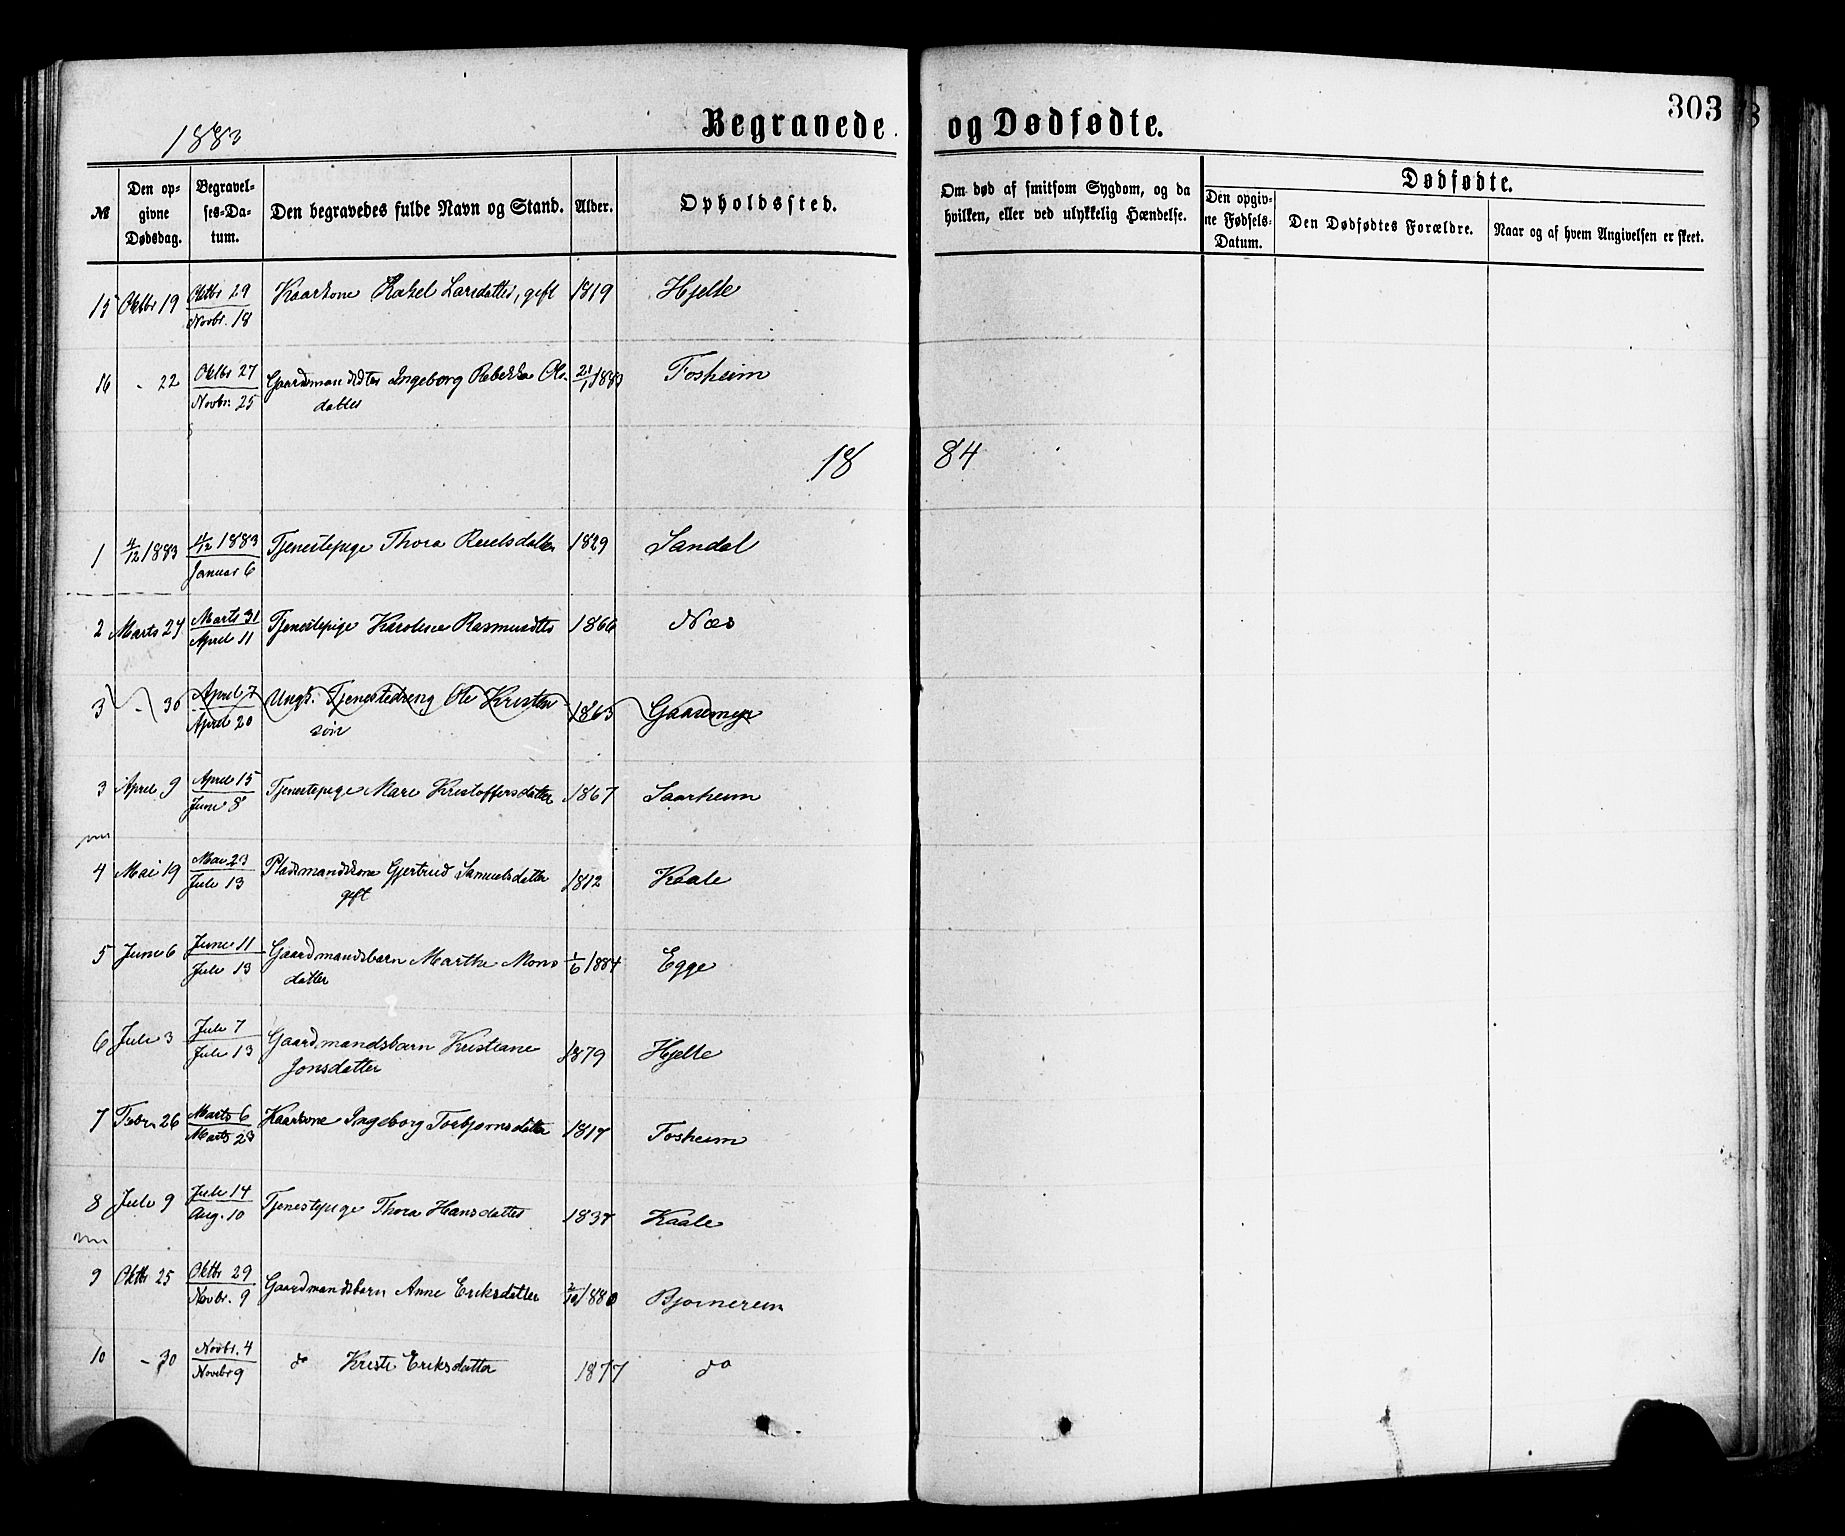 303
1883 Begravede og Dødfødte.
№ Den opgivne Dødsdag. Begravelses-Datum. Den begravedes fulde Navn og Stand. Alder. Opholdssted. Om død af smitsom Sygdom, og da hvilken, eller ved ulykkelig Hændelse. Dødfødte. Den opgivne Fødsels-Datum. Den Dødfødtes Forældre. Naar og af hvem Angivelsen er skeet.
15 Oktbr 19 Oktbr 29 Kaarkone Rakel Larsdatter, gift 1819 Hjelle
Novbr. 18
16 - 22 Oktbr 27 Gaardsman dsdtr Ingeborg Rebekka Ols- 21/1 1883 Fosheim
Novbr. 25 datter
18 84
1 4/12 1883 11/12 1883 Tjenestepige Thora Reielsdatter 1829 Sandal
Januar 6
2 Marts 27 Marts 31 Tjenestepige Karoline Rasmusdtr 1866 Næs
April 11
3 - 30 April 7 Ungk. Tjenestedreng Ole Kristen 1863 Gaaremyr
April 20 søn
3 April 9 April 15 Tjenestepige Mari Kristoffersdatter 1867 Saarheim
Juni 8
4 Mai 19 Mai 23 Pladsmandskone Gjertrud Samuelsdatter 1812 Kaale
Juli 13 gift
5 Juni 6 Juni 11 Gaardmandsbarn Marthe Mons 1/6 1884 Egge
Juli 13 datter
6 Juli 3 Juli 7 Gaardmandsbarn Kristiane 1879 Hjelle
Juli 13 Jonsdatter
7 Febr 26 Marts 6 Kaarkone Ingeborg Torbjørnsdatter 1817 Fosheim
Marts 23
8 Juli 9 Juli 14 Tjenestepige Thora Hansdatter 1837 Kaale
Aug. 10
9 Oktbr 25 Oktbr 29 Gaardmandsbarn Anne Eriksdatter 2/10 1880 Bjørnereim
Novbr. 9
10 - 30 Novbr. 4 do Kristi Eriksdatter 1877 do
Novbr 9